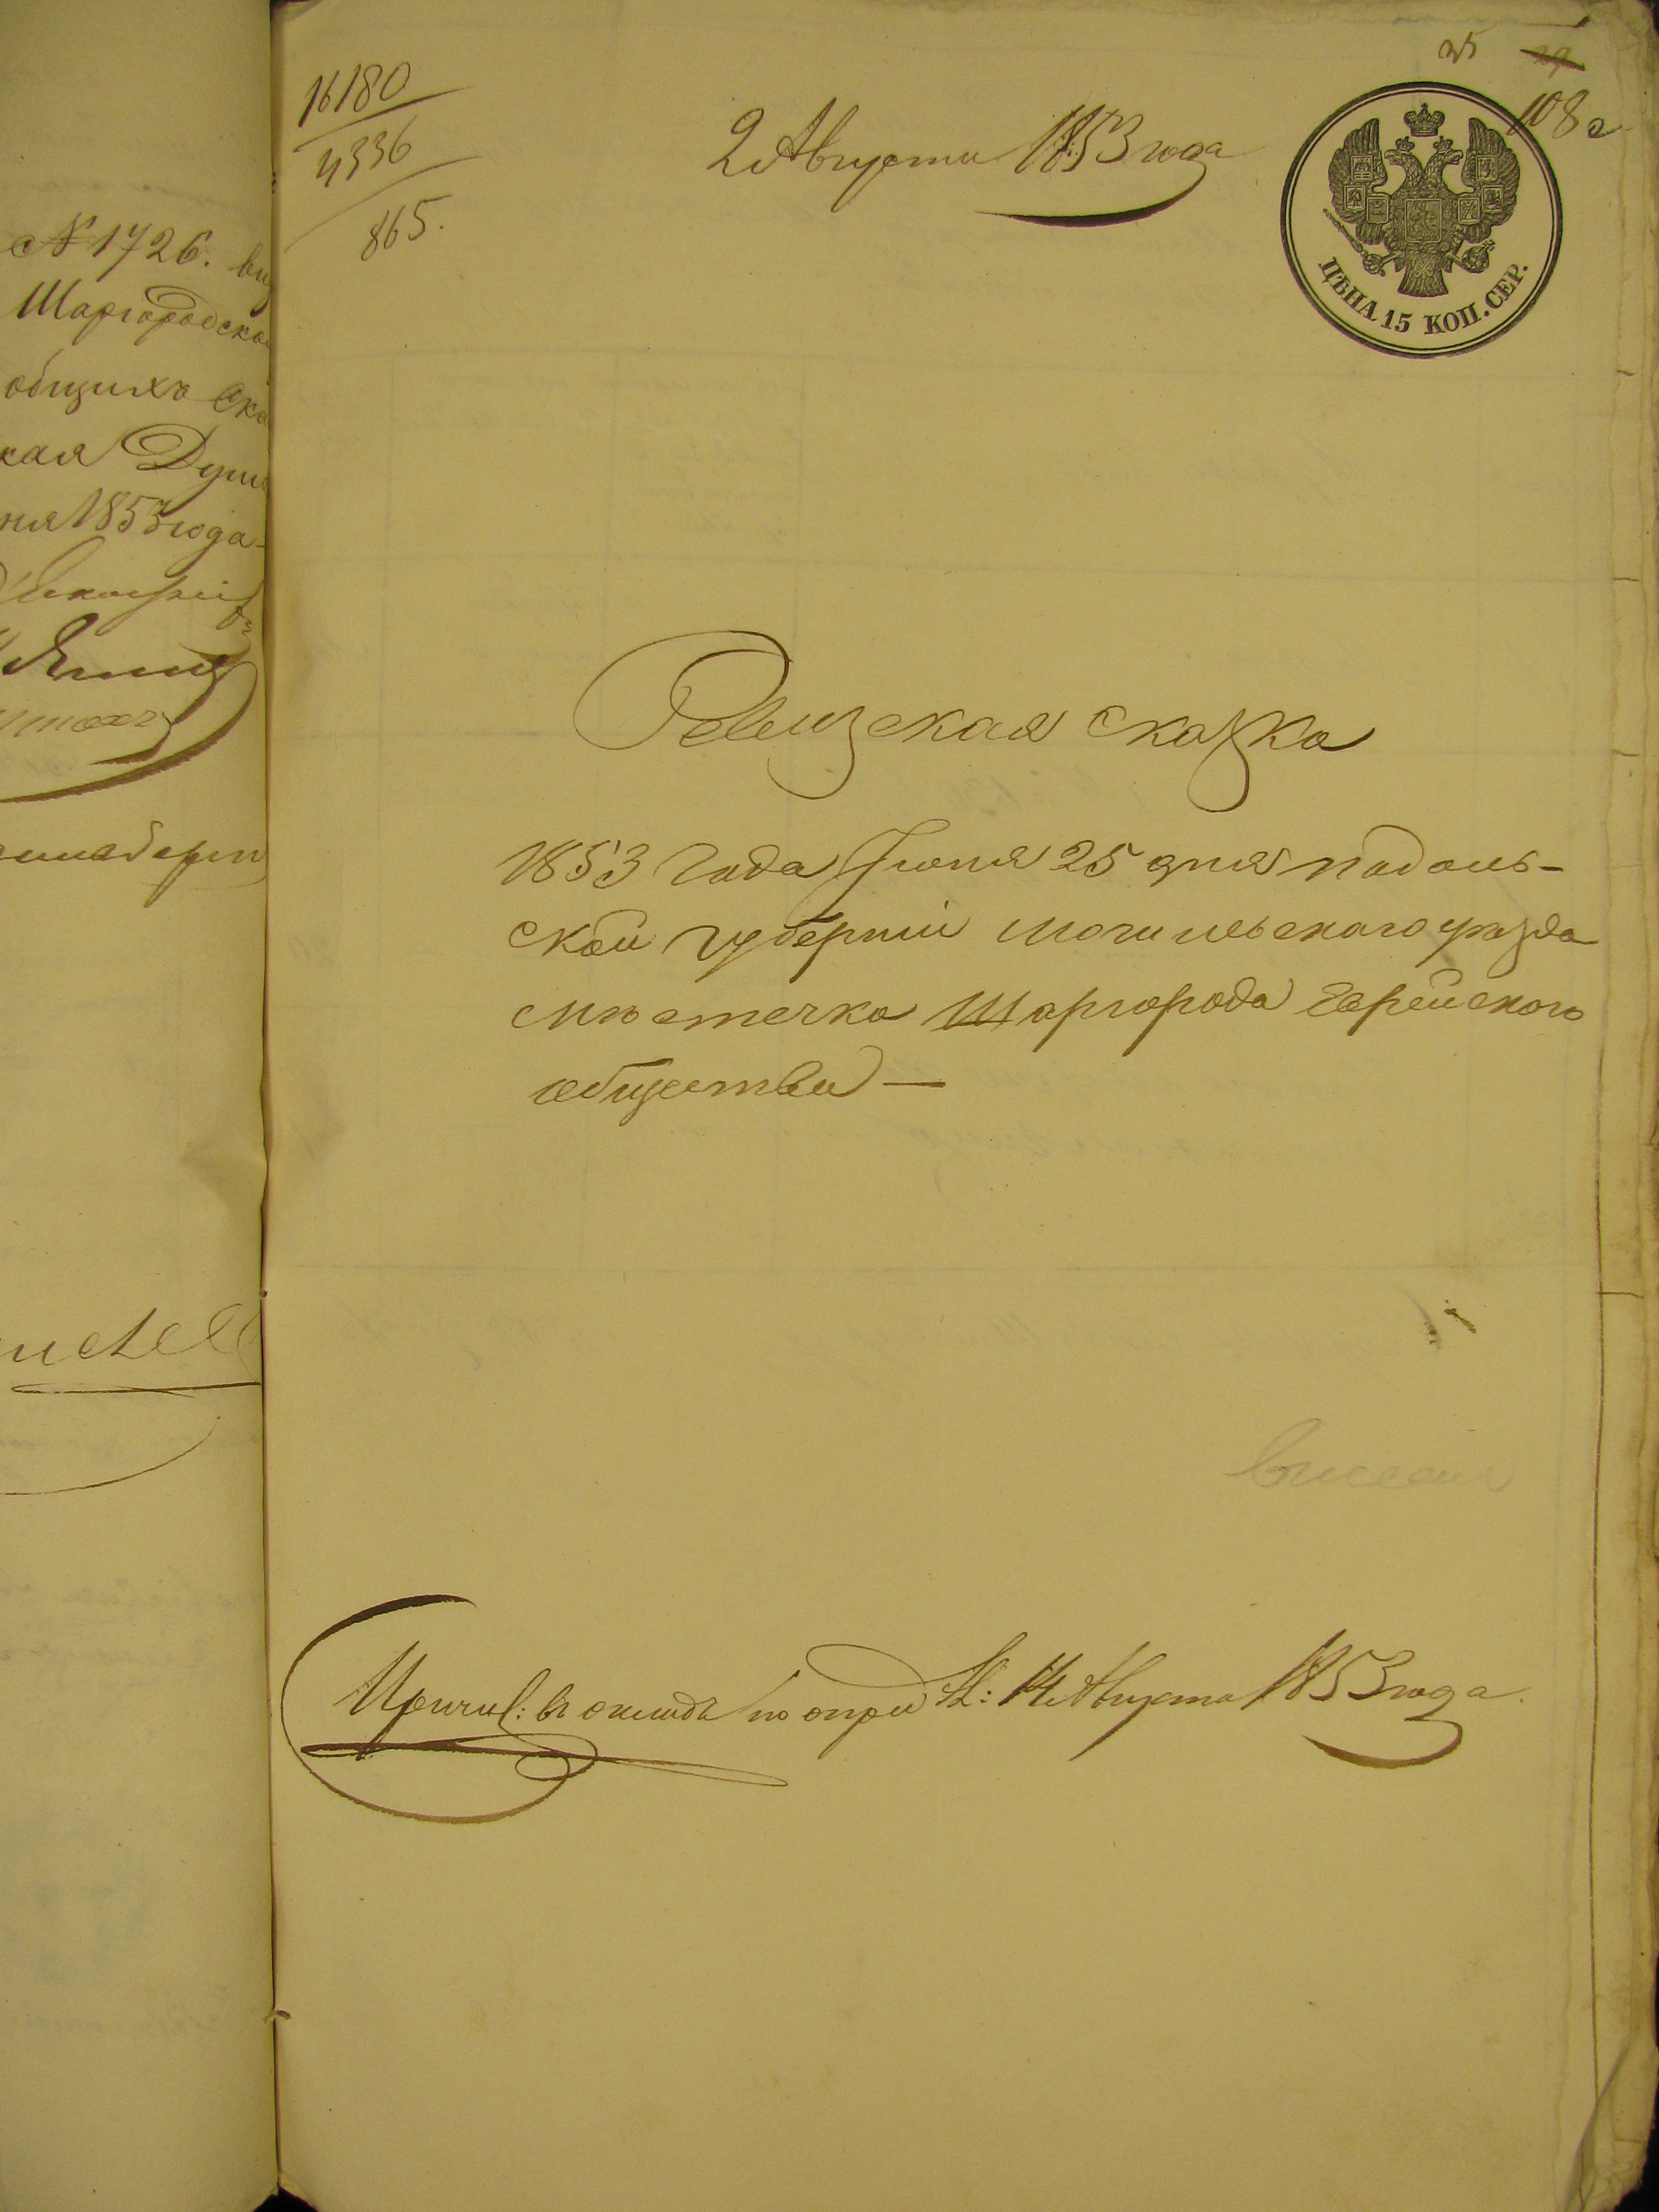 № 1726.
Шаргородско
общихъ
кая Дума
ня 1853 года
35
108
16180
4336
865.
2 Августа 1853 года
ЦѢНА 15 КОП. СЕР.
Ревизская сказка
1853 Года Июня 25 дня подоль-
ской губерніи могилевского уезда
местечка Шаргорода Еврейского
общества —
Причисл: въ окладъ по опред 14 Августа 1853 года.